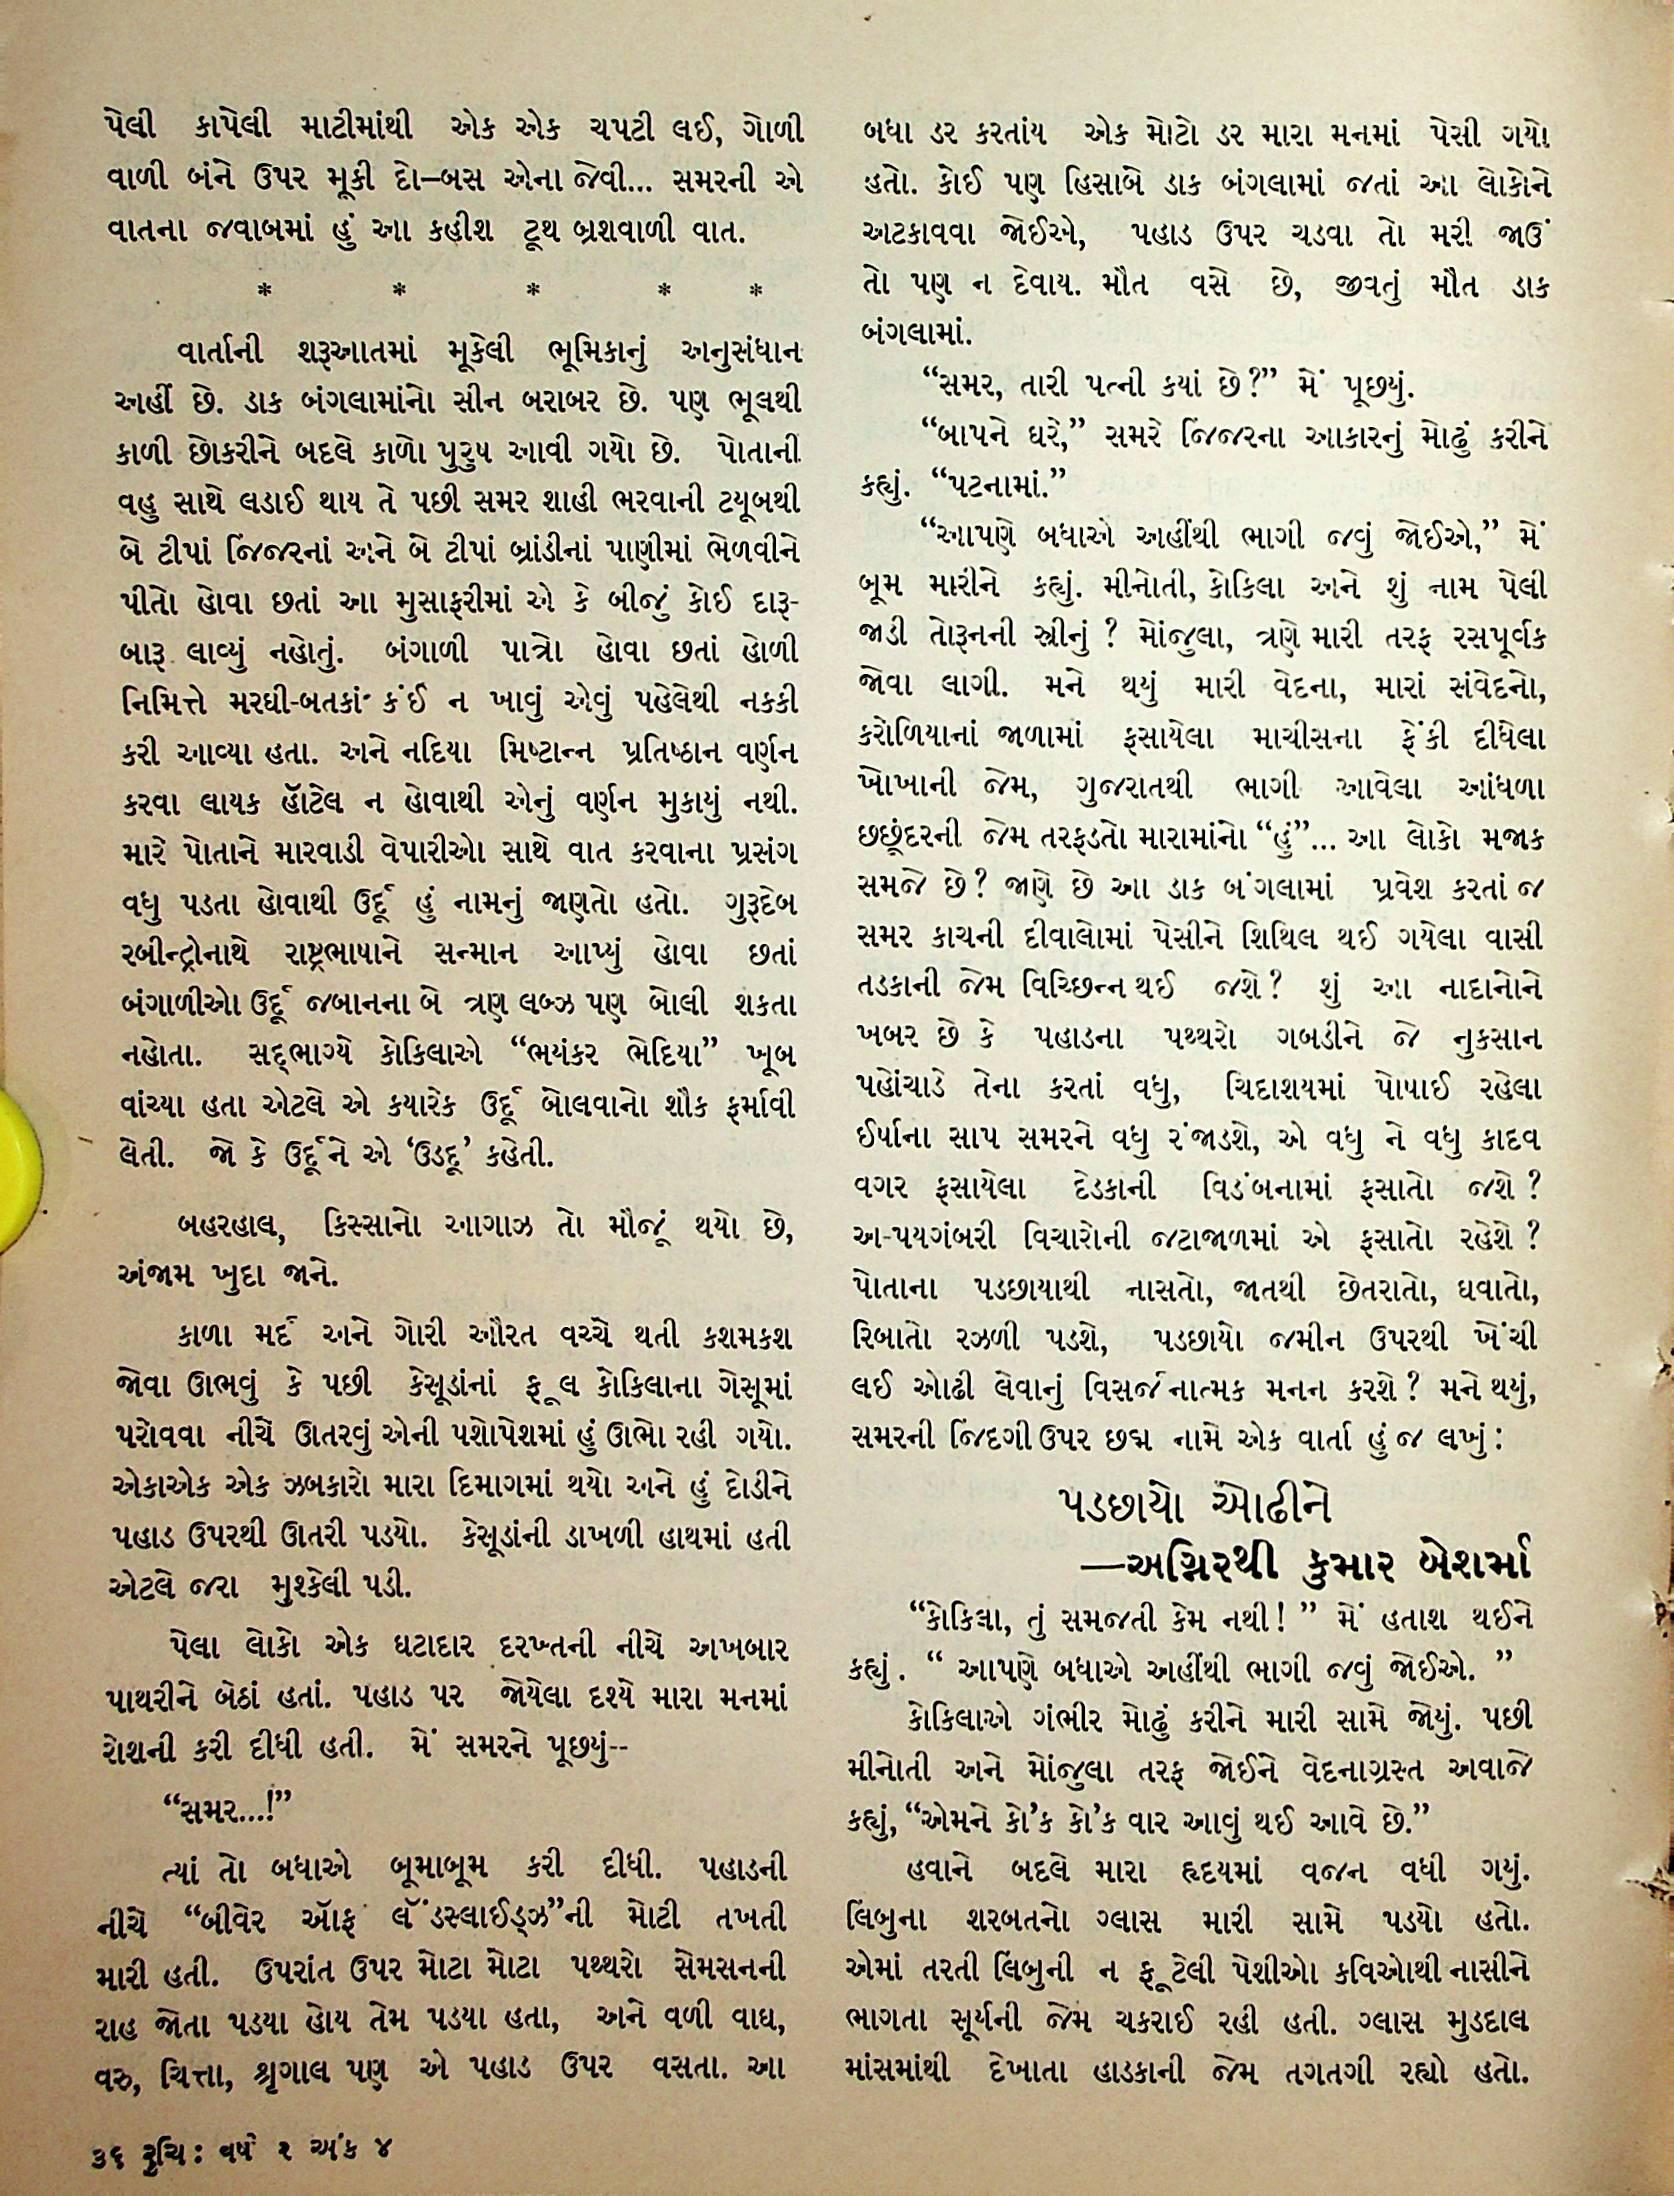 પેલી કાપેલી માટીમાંથી એક એક ચપટી લઈ, ગોળી
વાળી બંને ઉપર મૂકી દો–બસ એના જેવી... સમરની એ
વાતના જવાબમાં હું આ કહીશ ટૂથ બ્રશવાળી વાત.
* * * * *
વાર્તાની શરૂઆતમાં મૂકેલી ભૂમિકાનું અનુસંધાન
અહીં છે. ડાક બંગલામાંનો સીન બરાબર છે. પણ ભૂલથી
કાળી છોકરીને બદલે કાળો પુરુષ આવી ગયો છે. પોતાની
વહુ સાથે લડાઈ થાય તે પછી સમર શાહી ભરવાની ટયૂબથી
બે ટીપાં જિંજરનાં અને બે ટીપાં બ્રાંડીનાં પાણીમાં ભેળવીને
પીતો હોવા છતાં આ મુસાફરીમાં એ કે બીજું કોઈ દારૂ-
બારૂ લાવ્યું નહોતું. બંગાળી પાત્રો હોવા છતાં હોળી
નિમિત્તે મરઘી-બતકાં કંઈ ન ખાવું એવું પહેલેથી નકકી
કરી આવ્યા હતા. અને નદિયા મિષ્ટાન્ન પ્રતિષ્ઠાન વર્ણન
કરવા લાયક હૉટેલ ન હોવાથી એનું વર્ણન મુકાયું નથી.
મારે પોતાને મારવાડી વેપારીઓ સાથે વાત કરવાના પ્રસંગ
વધુ પડતા હોવાથી ઉર્દૂ હું નામનું જાણતો હતો. ગુરૂદેબ
રબીન્દ્રોનાથે રાષ્ટ્રભાષાને સન્માન આપ્યું હોવા છતાં
બંગાળીઓ ઉર્દૂ જબાનના બે ત્રણ લબ્ઝ પણ બોલી શકતા
નહોતા. સદ્ભાગ્યે કોકિલાએ “ભયંકર ભેદિયા” ખૂબ
વાંચ્યા હતા એટલે એ કયારેક ઉર્દૂ બોલવાનો શૌક ફર્માવી
લેતી. જો કે ઉર્દૂને એ ‘ઉડદૂ’ કહેતી.
બહરહાલ, કિસ્સાનો આગાઝ તો મૌજૂં થયો છે,
અંજામ ખુદા જાને.
કાળા મર્દ અને ગોરી ઔરત વચ્ચે થતી કશમકશ
જોવા ઊભવું કે પછી કેસૂડાંનાં ફૂલ કોકિલાના ગેસૂમાં
પરોવવા નીચે ઊતરવું એની પશોપેશમાં હું ઊભો રહી ગયો.
એકાએક એક ઝબકારો મારા દિમાગમાં થયો અને હું દોડીને
પહાડ ઉપરથી ઊતરી પડયો. કેસૂડાંની ડાખળી હાથમાં હતી
એટલે જરા મુશ્કેલી પડી.
પેલા લોકો એક ઘટાદાર દરખ્તની નીચે અખબાર
પાથરીને બેઠાં હતાં. પહાડ પર જોયેલા દશ્યે મારા મનમાં
રોશની કરી દીધી હતી. મેં સમરને પૂછયું--
“સમર...!”
ત્યાં તો બધાએ બૂમાબૂમ કરી દીધી. પહાડની
નીચે “બીવેર ઑફ લૅંડસ્લાઈડ્ઝ”ની મોટી તખતી
મારી હતી. ઉપરાંત ઉપર મોટા મોટા પથ્થરો સેમસનની
રાહ જોતા પડયા હોય તેમ પડયા હતા, અને વળી વાઘ,
વરુ, ચિત્તા, શ્રૃગાલ પણ એ પહાડ ઉપર વસતા. આ
બધા ડર કરતાંય એક મોટો ડર મારા મનમાં પેસી ગયો
હતો. કોઈ પણ હિસાબે ડાક બંગલામાં જતાં આ લોકોને
અટકાવવા જોઈએ, પહાડ ઉપર ચડવા તો મરી જાઉં
તો પણ ન દેવાય. મૌત વસે છે, જીવતું મૌત ડાક
બંગલામાં.
“સમર, તારી પત્ની કયાં છે?” મેં પૂછયું.
“બાપને ઘરે,” સમરે જિંજરના આકારનું મોઢું કરીને
કહ્યું. “પટનામાં.”
“આપણે બધાએ અહીંથી ભાગી જવું જોઈએ,” મેં
બૂમ મારીને કહ્યું. મીનોતી, કોકિલા અને શું નામ પેલી
જાડી તોરૂનની સ્ત્રીનું ? મોંજુલા, ત્રણે મારી તરફ રસપૂર્વક
જોવા લાગી. મને થયું મારી વેદના, મારાં સંવેદનો,
કરોળિયાનાં જાળામાં ફસાયેલા માચીસના ફેંકી દીધેલા
ખોખાની જેમ, ગુજરાતથી ભાગી આવેલા આંધળા
છછૂંદરની જેમ તરફડતો મારામાંનો “હું”... આ લોકો મજાક
સમજે છે? જાણે છે આ ડાક બંગલામાં પ્રવેશ કરતાં જ
સમર કાચની દીવાલોમાં પેસીને શિથિલ થઈ ગયેલા વાસી
તડકાની જેમ વિચ્છિન્ન થઈ જશે? શું આ નાદાનોને
ખબર છે કે પહાડના પથ્થરો ગબડીને જે નુકસાન
પહોંચાડે તેના કરતાં વધુ, ચિદાશયમાં પોષાઈ રહેલા
ઈર્ષાના સાપ સમરને વધુ રંજાડશે, એ વધુ ને વધુ કાદવ
વગર ફસાયેલા દેડકાની વિડંબનામાં ફસાતો જશે ?
અ-પયગંબરી વિચારોની જટાજાળમાં એ ફસાતો રહેશે ?
પોતાના પડછાયાથી નાસતો, જાતથી છેતરાતો, ઘવાતો,
રિબાતો રઝળી પડશે, પડછાયો જમીન ઉપરથી ખેંચી
લઈ ઓઢી લેવાનું વિસર્જનાત્મક મનન કરશે ? મને થયું,
સમરની જિંદગી ઉપર છદ્મ નામે એક વાર્તા હું જ લખું :
પડછાયો ઓઢીને
—અગ્નિરથી કુમાર બેશર્મા
“કોકિલા, તું સમજતી કેમ નથી! ” મેં હતાશ થઈને
કહ્યું . “ આપણે બધાએ અહીંથી ભાગી જવું જોઈએ. ”
કોકિલાએ ગંભીર મોઢું કરીને મારી સામે જોયું. પછી
મીનોતી અને મોંજુલા તરફ જોઈને વેદનાગ્રસ્ત અવાજે
કહ્યું, “એમને કો’ક કો’ક વાર આવું થઈ આવે છે.”
હવાને બદલે મારા હૃદયમાં વજન વધી ગયું.
લિંબુના શરબતનો ગ્લાસ મારી સામે પડયો હતો.
એમાં તરતી લિંબુની ન ફૂટેલી પેશીઓ કવિઓથી નાસીને
ભાગતા સૂર્યની જેમ ચકરાઈ રહી હતી. ગ્લાસ મુડદાલ
માંસમાંથી દેખાતા હાડકાની જેમ તગતગી રહ્યો હતો.
૩૬ રૂચિ : વર્ષ ૨ અંક ૪